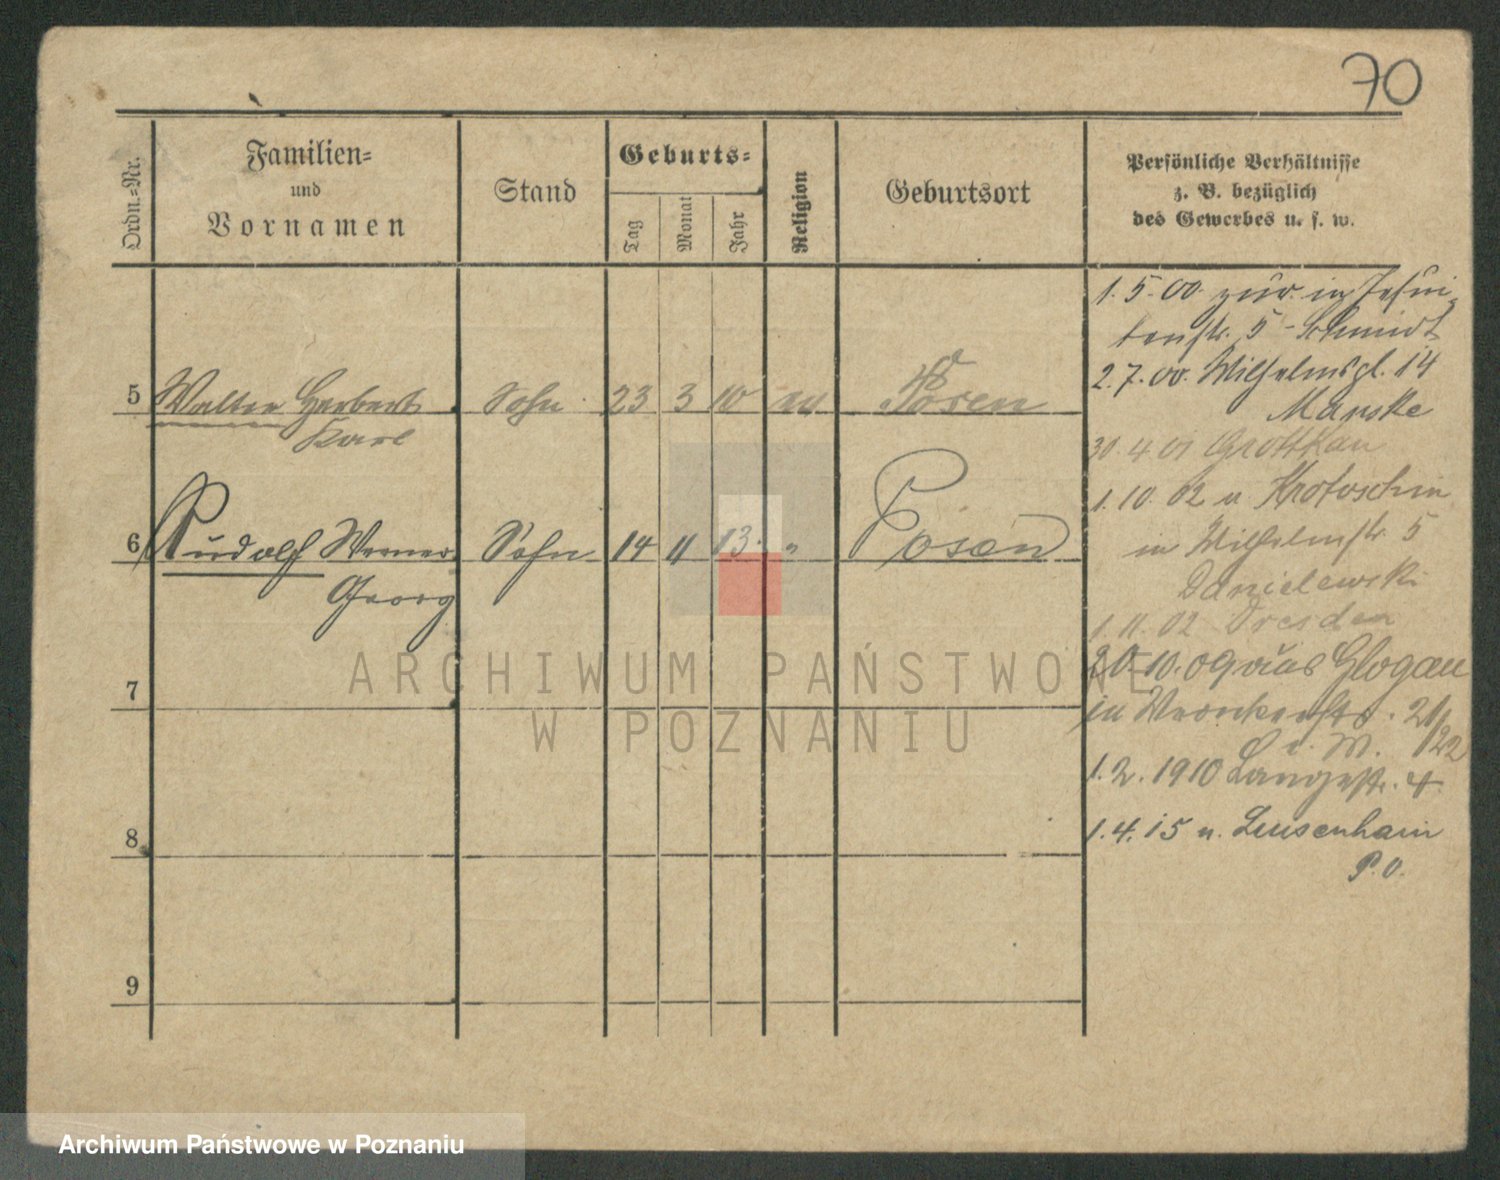 70
Ordn.-Nr.
Familien-
und
Vornamen
Stand
Geburts-
Tag
Monat
Jahr
Religion
Geburtsort
Persönliche Verhältnisse
z. B. bezüglich
des Gewerbes u. s. w.
5 Walter Herbert Sohn 23 3 10 ev Posen
Karl
6 Rudolf Werner Sohn 14 11 13. " Posen
Georg
7
8
9
1. 5. 00. zur. in Jesui-
tenstr. 5 - Schmidt
2. 7. 00. Wilhelmspl. 14
Manske
30. 4 01 Grottkau
1. 10. 02 n Krotoschin
in Wilhelmstr. 5
Danielewski
1. 11. 02 Dresden
20. 10. 09 aus Glogau
in Wronkerstr. 21/22
b. M.
1. 2. 1910 Langestr. 4
1. 4. 15 n. Luisenhain
P. O.
ARCHIWUM PAŃSTWOWE
W POZNANIU
Archiwum Państwowe w Poznaniu